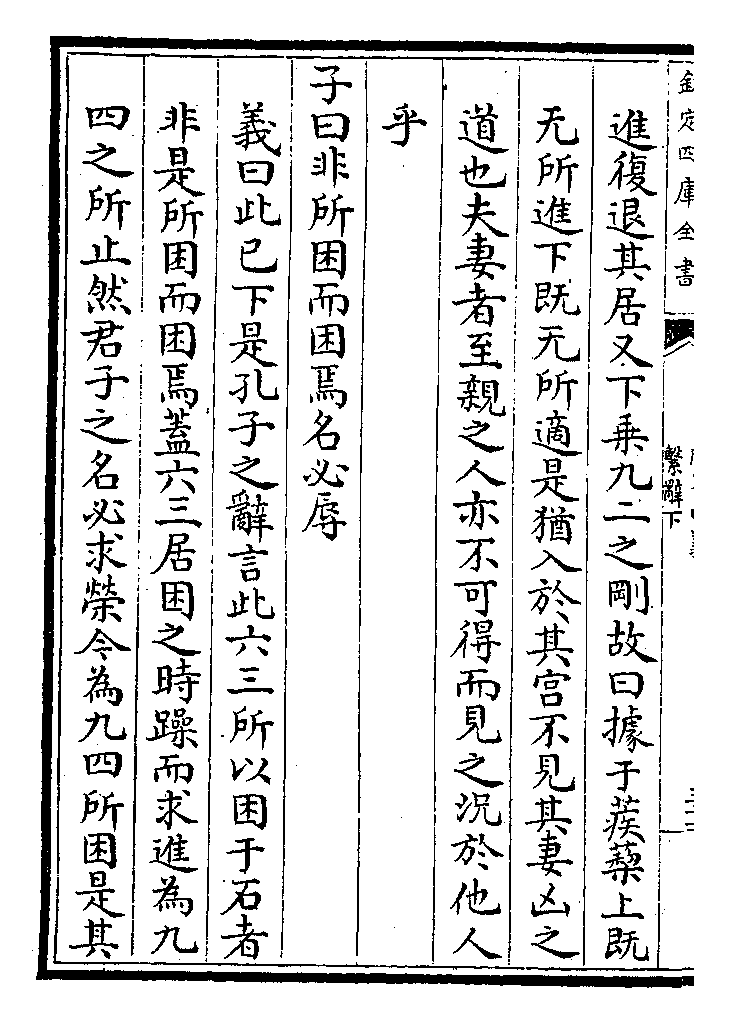 欽定四庫全書
繫辭下
進復退其居又下乗九二之剛故曰據于蒺藜上既
无所進下既无所適是猶入於其宫不見其妻凶之
道也夫妻者至親之人亦不可得而見之況於他人
乎
子曰非所困而困焉名必辱
義曰此已下是孔子之辭言此六三所以困于石者
非是所困而困焉蓋六三居困之時躁而求進為九
四之所止然君子之名必求榮今為九四所困是其